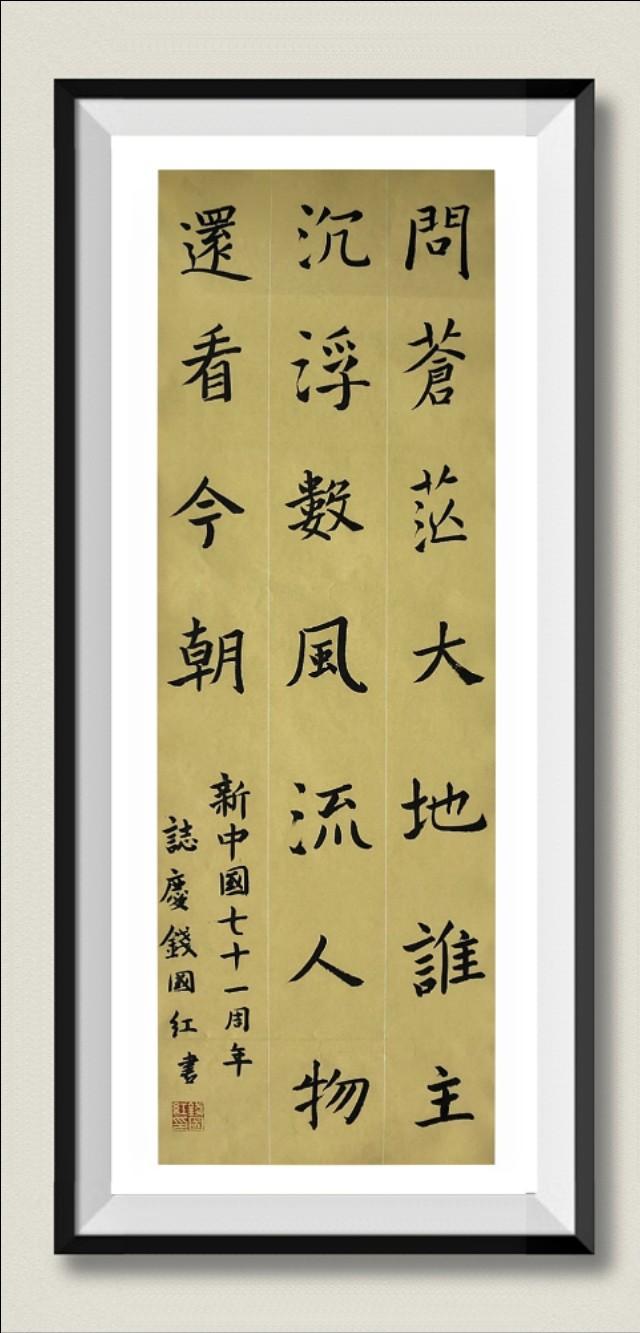 問蒼茫大地誰主
沉浮數風流人物
還看今朝
新中國七十一周年
誌慶錢國紅書